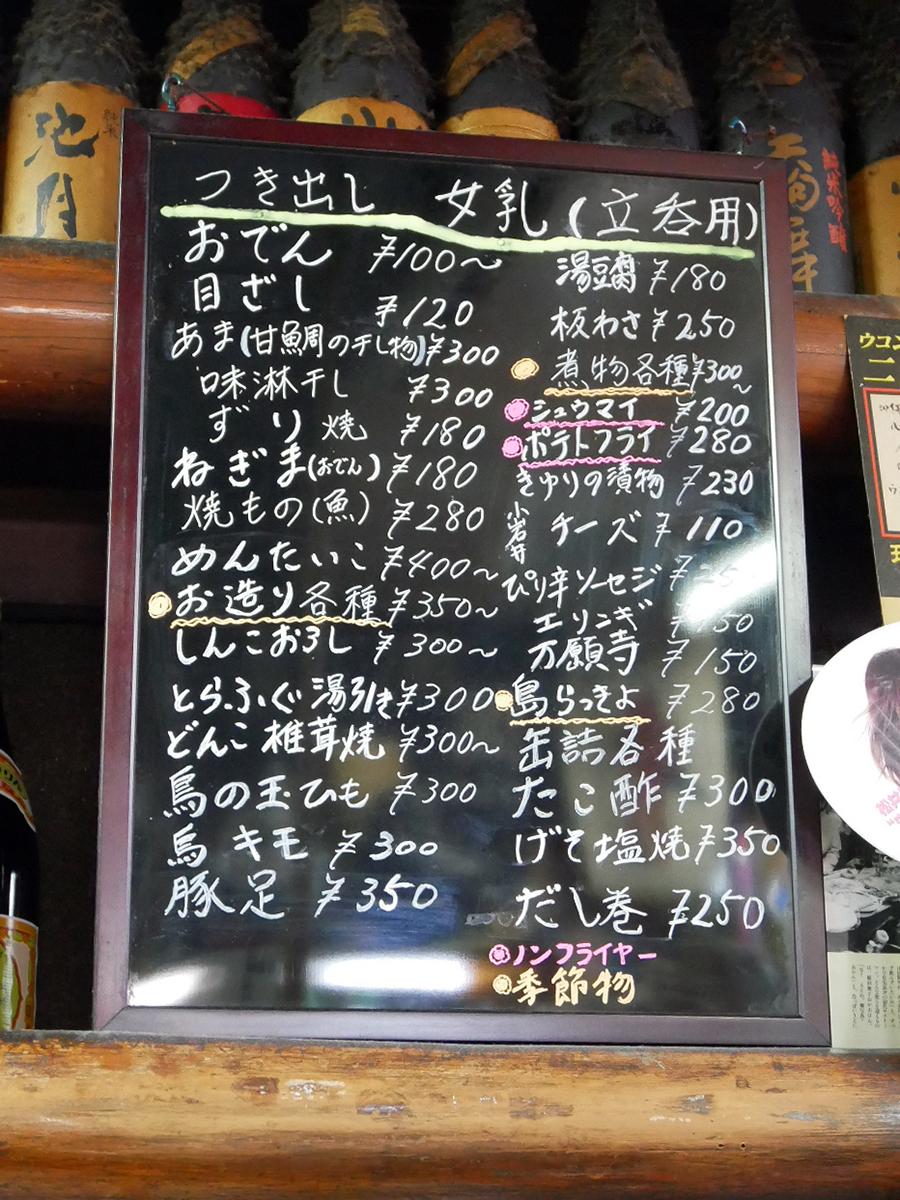 池月
つき出し 女乳(立呑用)
おでん ¥100〜
目ざし ¥120
あま(甘鯛の干し物)¥300
味淋干し ¥300
ずり焼 ¥180
ねぎま(おでん) ¥180
焼もの(魚) ¥280
めんたいこ ¥400〜
お造り各種 ¥350〜
しんこおろし ¥300〜
とらふぐ湯引き ¥300
どんこ椎茸焼 ¥300〜
鳥の玉ひも ¥300
鳥キモ ¥300
豚足 ¥350
湯豆腐 ¥180
板わさ ¥250
煮物各種 ¥300〜
シュウマイ ¥200
ポテトフライ ¥280
きゅりの漬物 ¥230
小岩井 チーズ ¥110
ぴり辛ソーセジ
エリンギ
万願寺 ¥150
島らっきょ ¥280
缶詰各種
たこ酢 ¥300
げそ塩焼 ¥350
だし巻 ¥250
ノンフライヤー
季節物
純米吟醸
ウコン
二